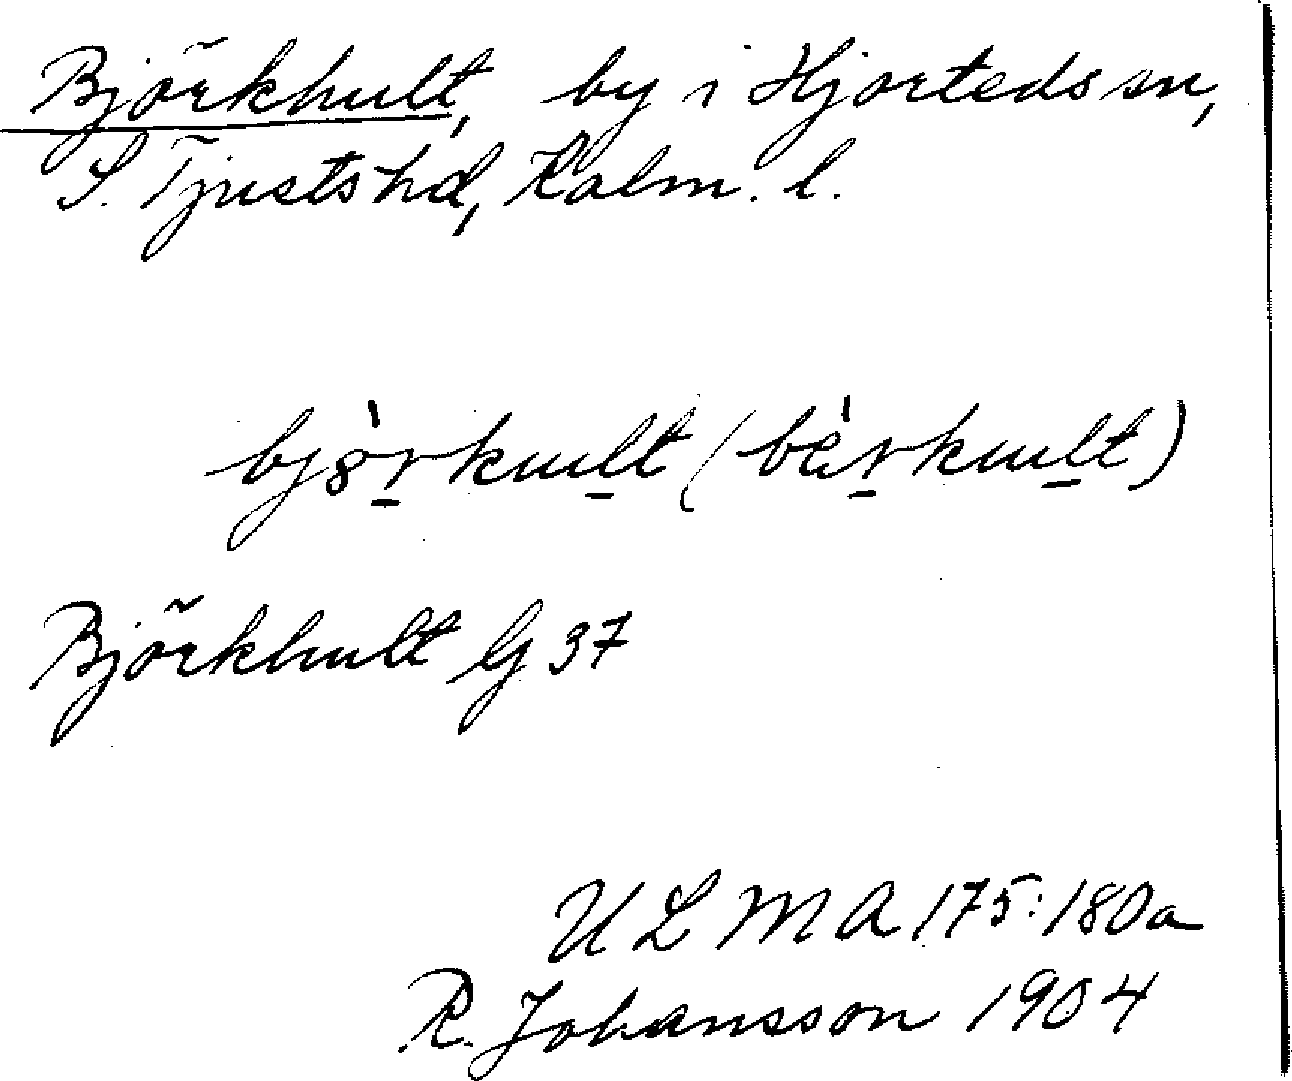 Björkhult, by i Hjorteds sn,
S. Tjusts hd, Kalm. l.
björkult (bèrkult)
Björkhult G 37
U L M A 175:180a
R. Johansson 1904